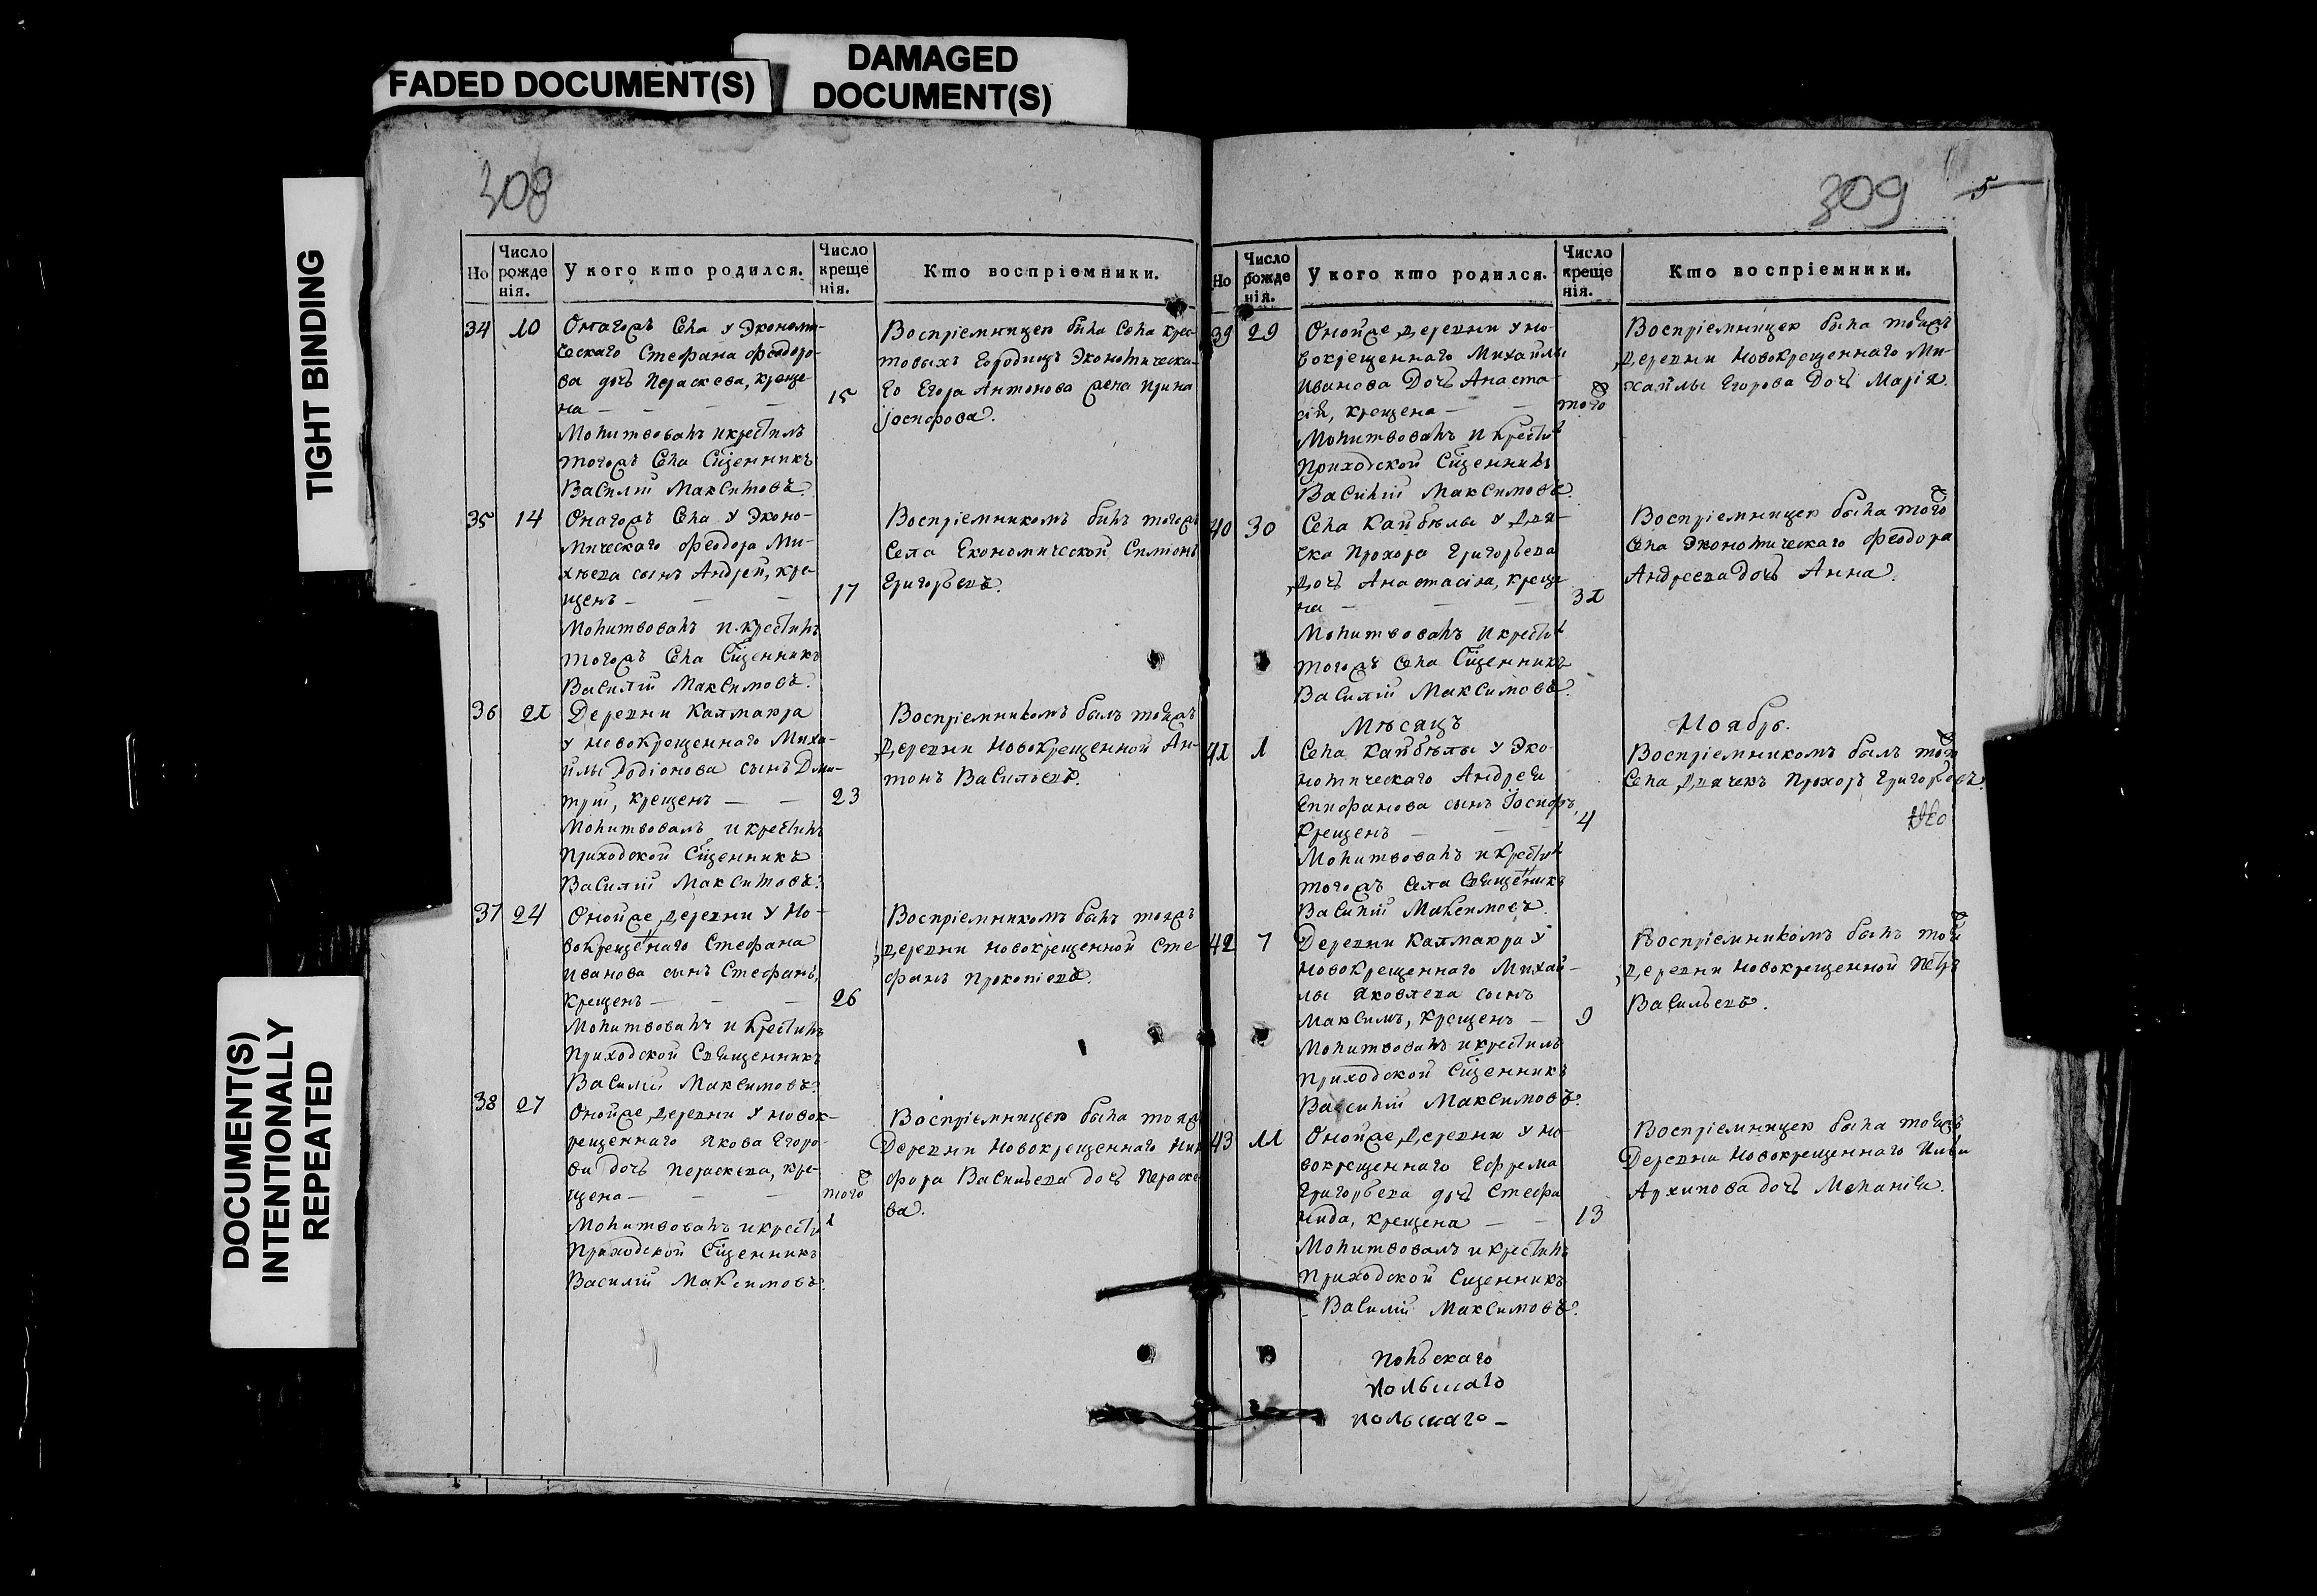 FADED DOCUMENT(S)
DAMAGED
DOCUMENT(S)
TIGHT BINDING
DOCUMENT(S)
INTENTIONALLY
REPEATED
308
Но
Число
рожде
нія.
У кого кто родился.
Число
креще
нія.
Кто воспріемники.
34
10
Онагожъ Села у Экономи-
ческаго Стефана Феодоро-
ва дочь Параскева, креще-
на — — — —
15
Молитвовалъ и крестилъ
тогожъ Села Сщенникъ
Василій Максимовъ.
Воспріемницею была Села Крес-
товыхъ Городищъ Экономическа-
го Егора Антонова жена Ирина
Іосифова.
35
14
Онагожъ Села у Эконо-
мическаго Феодора Ми-
хѣева сынъ Андрей, кре-
щенъ — — —
17
Молитвовалъ и крестилъ
тогожъ Села Сщенникъ
Василій Максимовъ.
Воспріемникомъ былъ тогожъ
Села Економической Симіонъ
Григорьевъ.
36
21
Деревни Калмаюра
у новокрещеннаго Миха-
йлы Родіонова сынъ Дми-
трій, крещенъ — —
23
Молитвовалъ и крестилъ
Приходской Сщенникъ
Василій Максимовъ.
Воспріемникомъ былъ тойжъ
Деревни Новокрещенной Ан-
тонъ Васильевъ.
37
24
Онойже Деревни у Но-
вокрещеннаго Стефана
Иванова сынъ Стефанъ,
крещенъ — — —
26
Молитвовалъ и крестилъ
Приходской Священникъ
Василій Максимовъ.
Воспріемникомъ былъ тояжъ
деревни новокрещенной Сте-
фанъ Прокопіевъ.
38
27
Онойже Деревни у новок-
рещеннаго Якова Егоро-
ва дочь Параскева, кре-
щена — — —
тогож
Молитвовалъ и крестил
Приходской Сщенникъ
Василій Максимовъ.
Воспріемницею была тояж
Деревни Новокрещеннаго Ники
фора Васильева дочь Параске
ва.
309
5
Но
Число
рожде
нія.
У кого кто родился.
Число
креще
нія.
Кто воспріемники.
39
29
Онойже Деревни у но-
вокрещеннаго Михайлы
Иванова дочь Анаста-
сія, крещена — —
тогож
Молитвовалъ и крестил
Приходской Сщенникъ
Василій Максимовъ.
Воспріемницею была тойжъ
Деревни Новокрещеннаго Ми-
хайлы Егорова дочь Марія.
40
30
Села Кайбѣлы у Дья-
чка Прохора Григорьева
Дочь Анастасія, креще
на — — —
31
Молитвовалъ и крестил
тогожъ Села Сщенникъ
Василій Максимовъ.
Воспріемницею была тогож
Села Экономическаго Феодора
Андреева дочь Анна.
Мѣсяцъ
Ноябрь.
41
1
Села Кайбѣлы у Эко-
номическаго Андрея
Епифанова сынъ Іосифъ,
крещенъ — — —
4
Молитвовалъ и крестил
тогожъ Села Священникъ
Василій Максимовъ.
Воспріемникомъ былъ тогож
Села Дьячекъ Прохоръ Григорьевъ.
42
7
Деревни Калмаюра у
новокрещеннаго Михай-
лы Яковлева сынъ
Максимъ, крещенъ —
9
Молитвовалъ и крестилъ
Приходской Сщенникъ
Василій Максимовъ.
Воспріемникомъ былъ тойж
Деревни Новокрещенной Петръ
Васильевъ.
43
11
Онойже Деревни у но-
вокрещеннаго Ефрема
Григорьева дочь Стефа
нида, крещена — —
13
Молитвовалъ и крестилъ
Приходской Сщенникъ
Василій Максимовъ.
Воспріемницею была тойжъ
Деревни Новокрещеннаго Ильи
Архипова дочь Меланія.